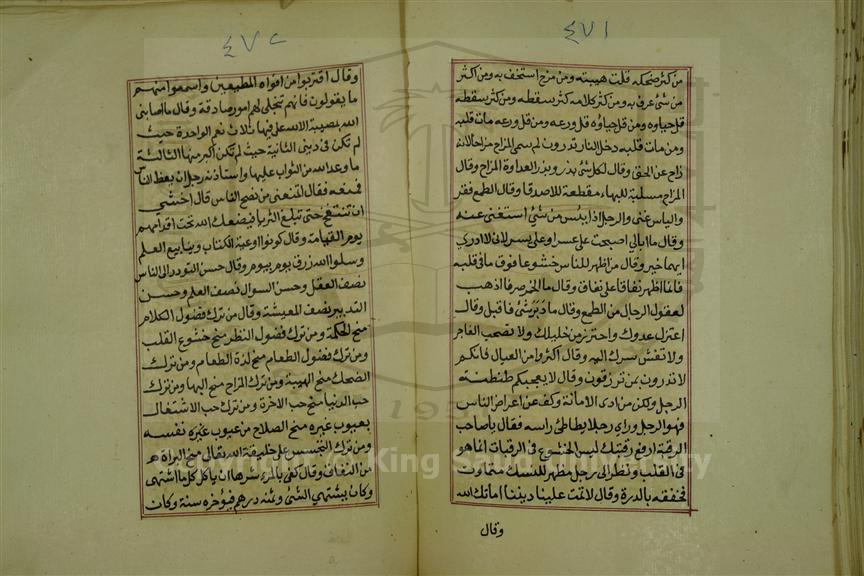 ٤٧١
من كثر ضحكه قلت هيبته ومن مزح استخف به ومن اكثر
من شئ عرف به ومن كثر كلامه كثر سقطه ومن كثر سقطه
قل حياوه ومن قل حياؤه قل ورعه ومن قل ورعه مات قلبه
ومن مات قلبه دخل النار تدرون لم سمى المزاح مزاحا لانه
زاح عن الحق وقال لكل شئ بذر وبذر العداوة المزاح وقال
المزاح مسلبة للبهاء مقطعة للاصدقا وقال الطمع فقر
والياس غنى والرجل اذا يئس من شئ استغنى عنه
وقال ما ابالى اصبحت على عسر او على يسر لانى لا ادرى
ايهما خير وقال من اظهر للناس خشوعا فوق ما فى قلبه
فانما اظهر نفاقا على نفاق وقال ما الخمر صرفا اذهب
لعقول الرجال من الطمع وقال ما دبر شئ فاقبل وقال
اعتزل عدوك واحترز من خليلك ولا تصحب الفاجر
ولا تفش سرك اليه وقال اكثروا من العيال فانكم
لا تدرون بمن ترزقون وقال لا يعجبكم طنطنة
الرجل ولكن من ادى الامانة وكف عن اعراض الناس
فهو الرجل وراى رجلا يطاطئ راسه فقال يا صاحب
الرقبة ارفع رقبتك ليس الخشوع فى الرقبات انما هو
فى القلب ونظر الى رجل مظهر للنسك متماوت
فخفقه بالدرة وقال لا تمت علينا ديننا اماتك الله
وقال
٤٧٢
وقال اقتربوا من افواه المطيعين واسمعوا منهم
ما يقولون فانهم تتجلى لهم امور صادقة وقال ما اصابنى
الله بمصيبة الا لله على فيها ثلاث نعم الواحدة حيث
لم تكن فى دينى الثانية حيث لم تكن اكبر منها الثالثة
ما وعد الله من الثواب عليها واستاذنه رجل ان يعظ الناس
فمنعه فقال اتمنعنى من نصح الناس قال اخشى
ان تنتفخ حتى تبلغ الثريا فيضعك الله تحت اقدامهم
يوم القيامة وقال كونوا اوعية الكتاب وينابيع العلم
وسلوا الله رزق يوم بيوم وقال حسن التودد الى الناس
نصف العقل وحسن السوال نصف العلم وحسن
التدبير نصف المعيشة وقال من ترك فضول الكلام
منح الحكمة ومن ترك فضول النظر منح خشوع القلب
ومن ترك فضول الطعام منح لذة الطعام ومن ترك
الضحك منح الهيبة ومن ترك المزاح منح البها ومن ترك
حب الدنيا منح حب الاخرة ومن ترك حب الاشتغال
بعيوب غيره منح الصلاح من عيوب غيره نفسه
ومن ترك التجسس على خليفة الله تعالى منح البراة
من النفاق وقال كفى بالمرء سرفا ان ياكل كل ما اشتهى
وكان يشتهى الشئ وثمنه درهم فيؤخره سنة وكان
1957
Copyright © King Saud University